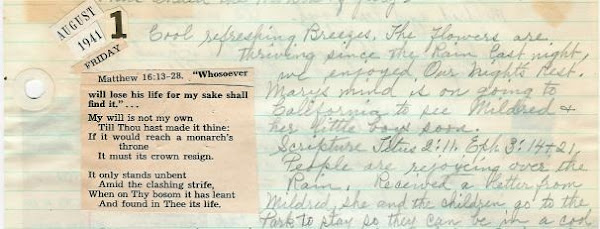 AUGUST
1941
1
FRIDAY
Cool refreshing Breezes. The Flowers are
thriving since the Rain Last night,
we enjoyed Our Night's Rest.
Marys mind is on going to
California to see Mildred &
her little boys soon.
Scripture Titus 2:11. Eph 3:14+21,
People are rejoicing over the
Rain. Received a Letter from
Mildred, she and the children go to the
Park to stay so they can be in a cool
Matthew 16:13-28. "Whosoever
will lose his life for my sake shall
find it."...
My will is not my own
Till Thou hast made it thine:
If it would reach a monarch's
throne
It must its crown resign.
It only stands unbent
Amid the clashing strife,
When on Thy bosom it has leant
And found in Thee its life.